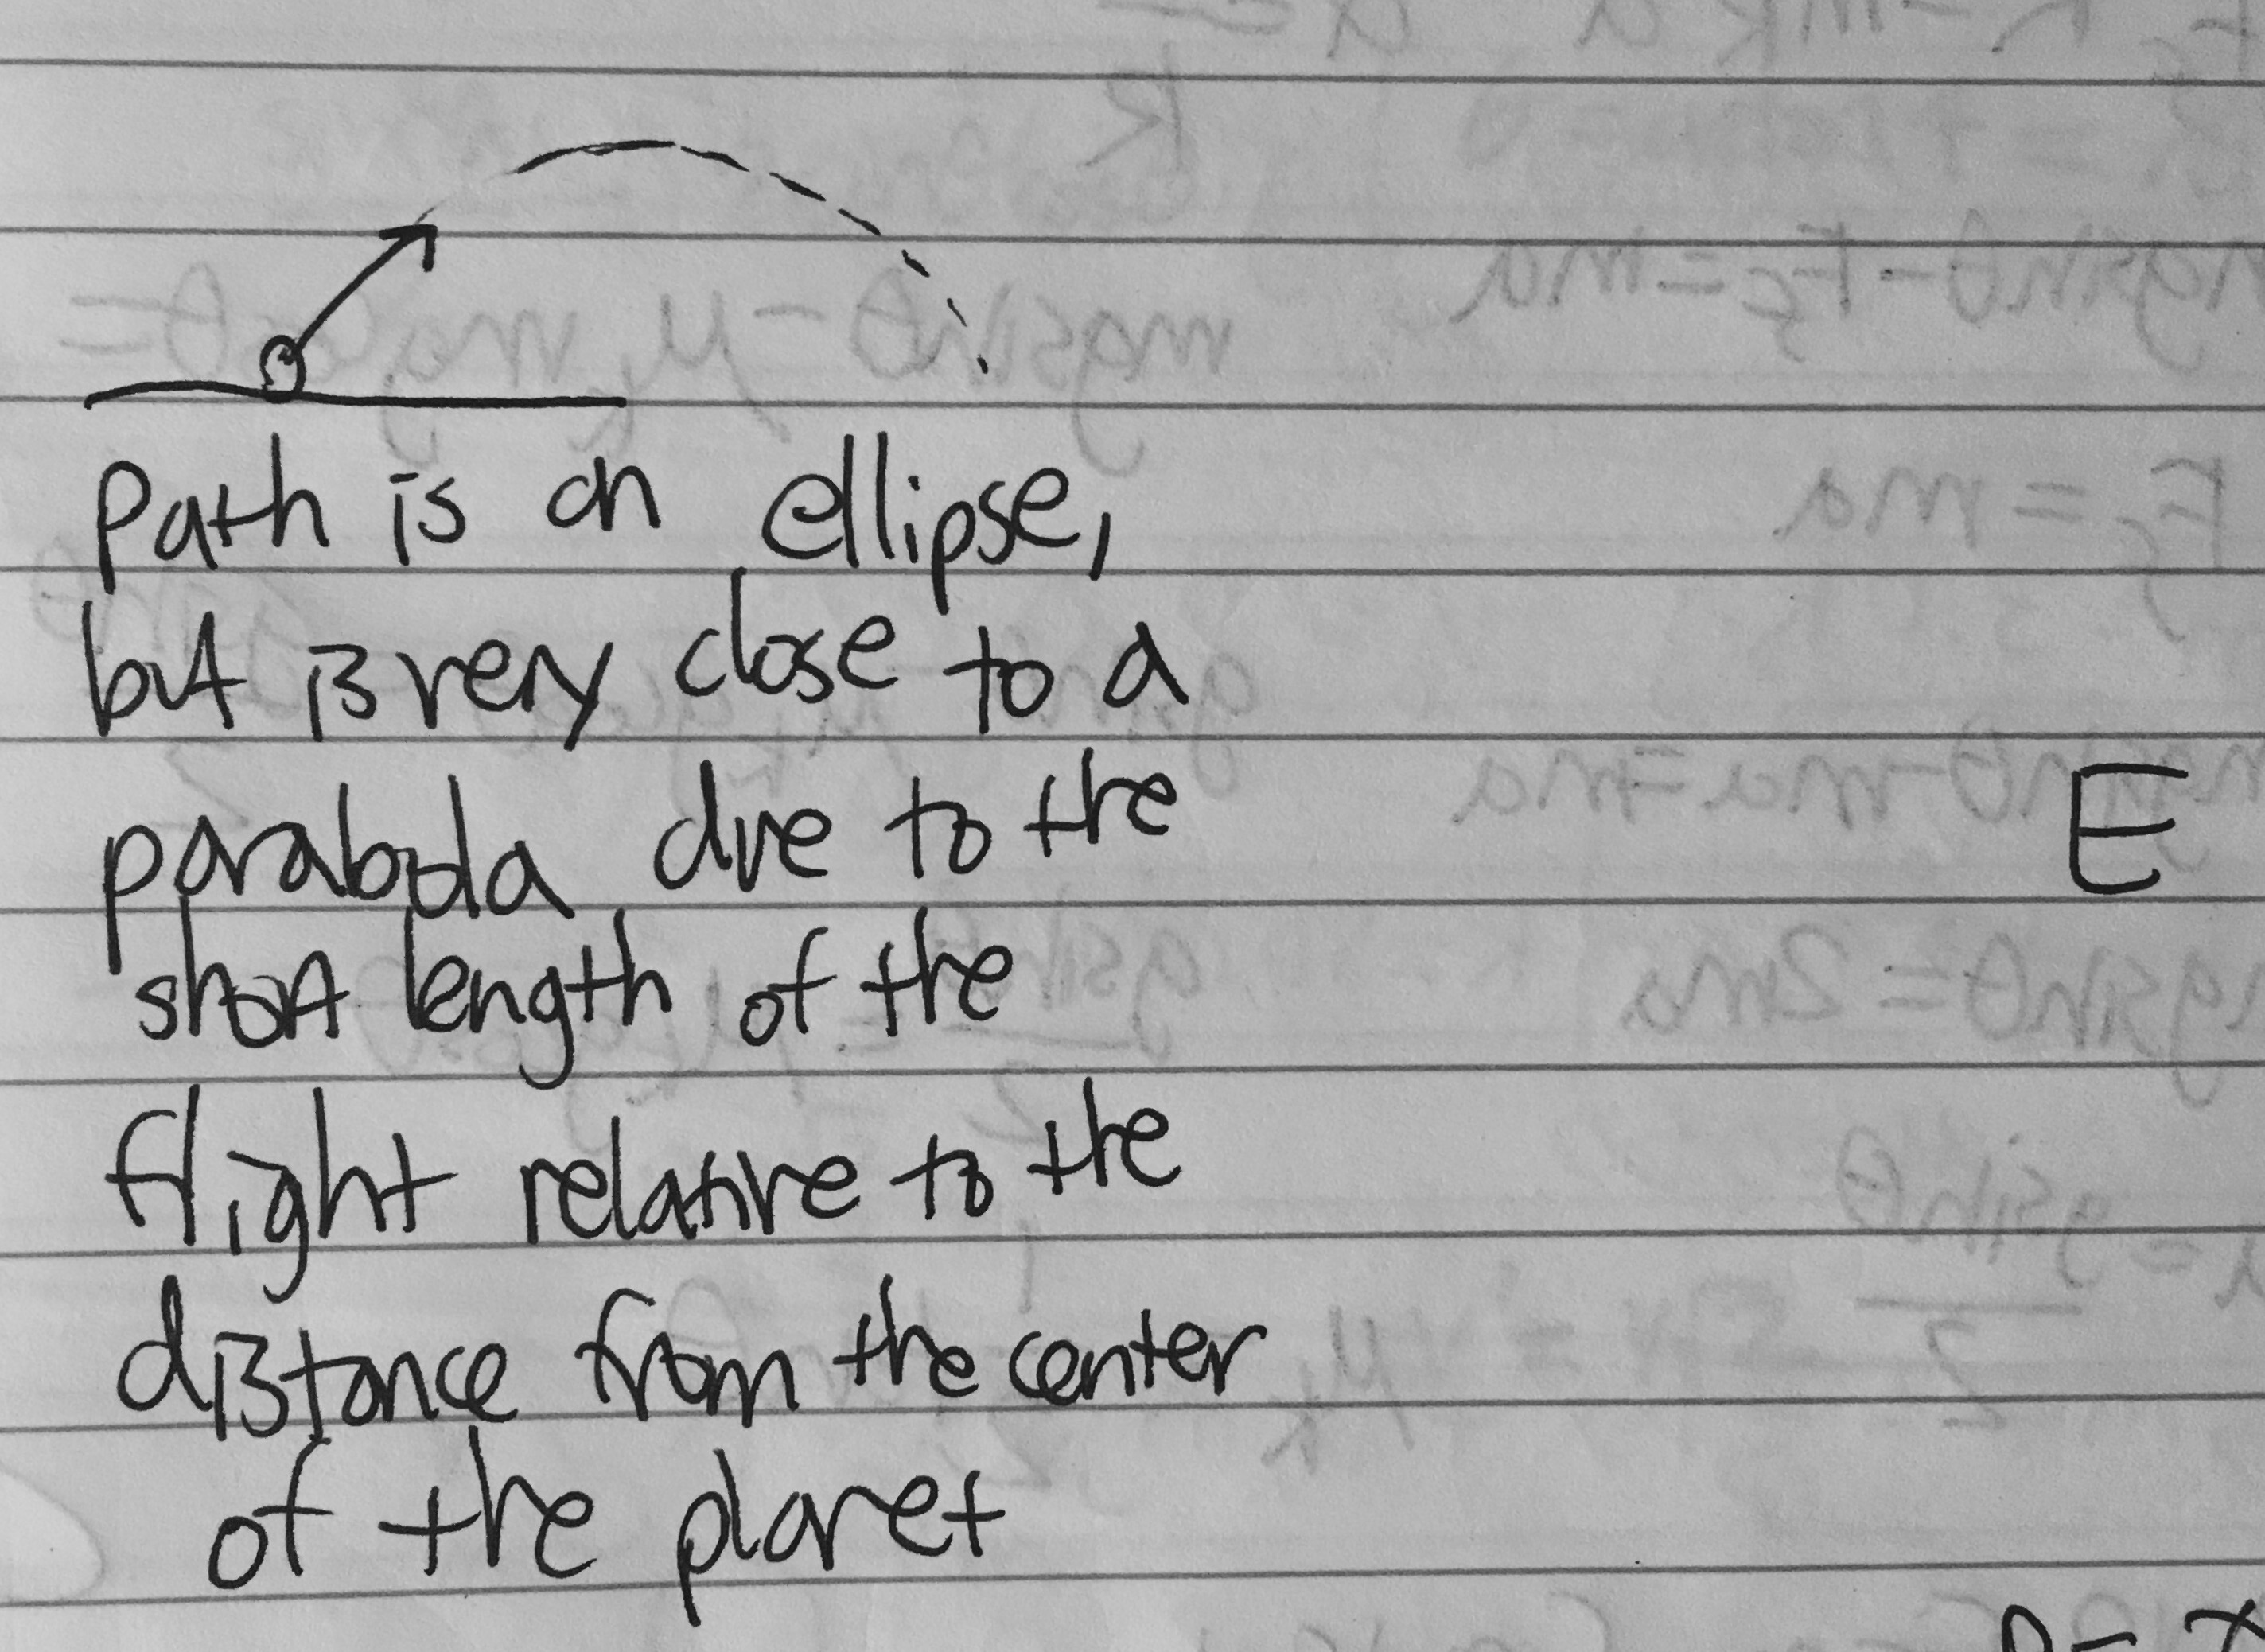 Path is an ellipse,
but is very close to a
parabola due to the
E
short length of the
flight relative to the
distance from the center
of the planet